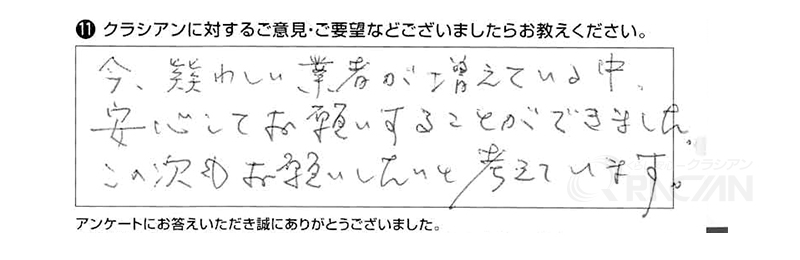 ⓫ クラシアンに対するご意見・ご要望などございましたらお教えください。
今、疑わしい業者が増えている中、
安心してお願いすることができました。
この次もお願いしたいと考えています。
クラシアン
アンケートにお答えいただき誠にありがとうございました。